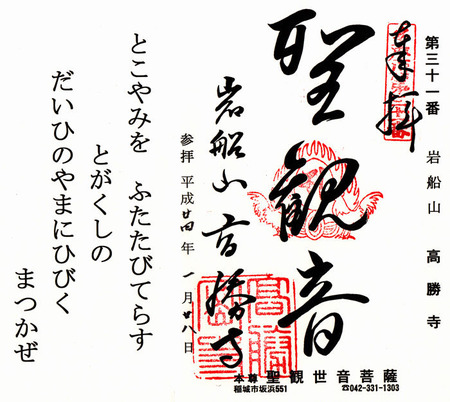 第三十一番 岩船山 高勝寺
奉拝
聖観音
岩船山高勝寺
参拝 平成廿四年 一月廿八日
本尊 聖観世音菩薩
稲城市坂浜551 ☎042-331-1303
とこやみを ふたたびてらす
とがくしの
だいひのやまにひびく
まつかぜ
高勝寺印